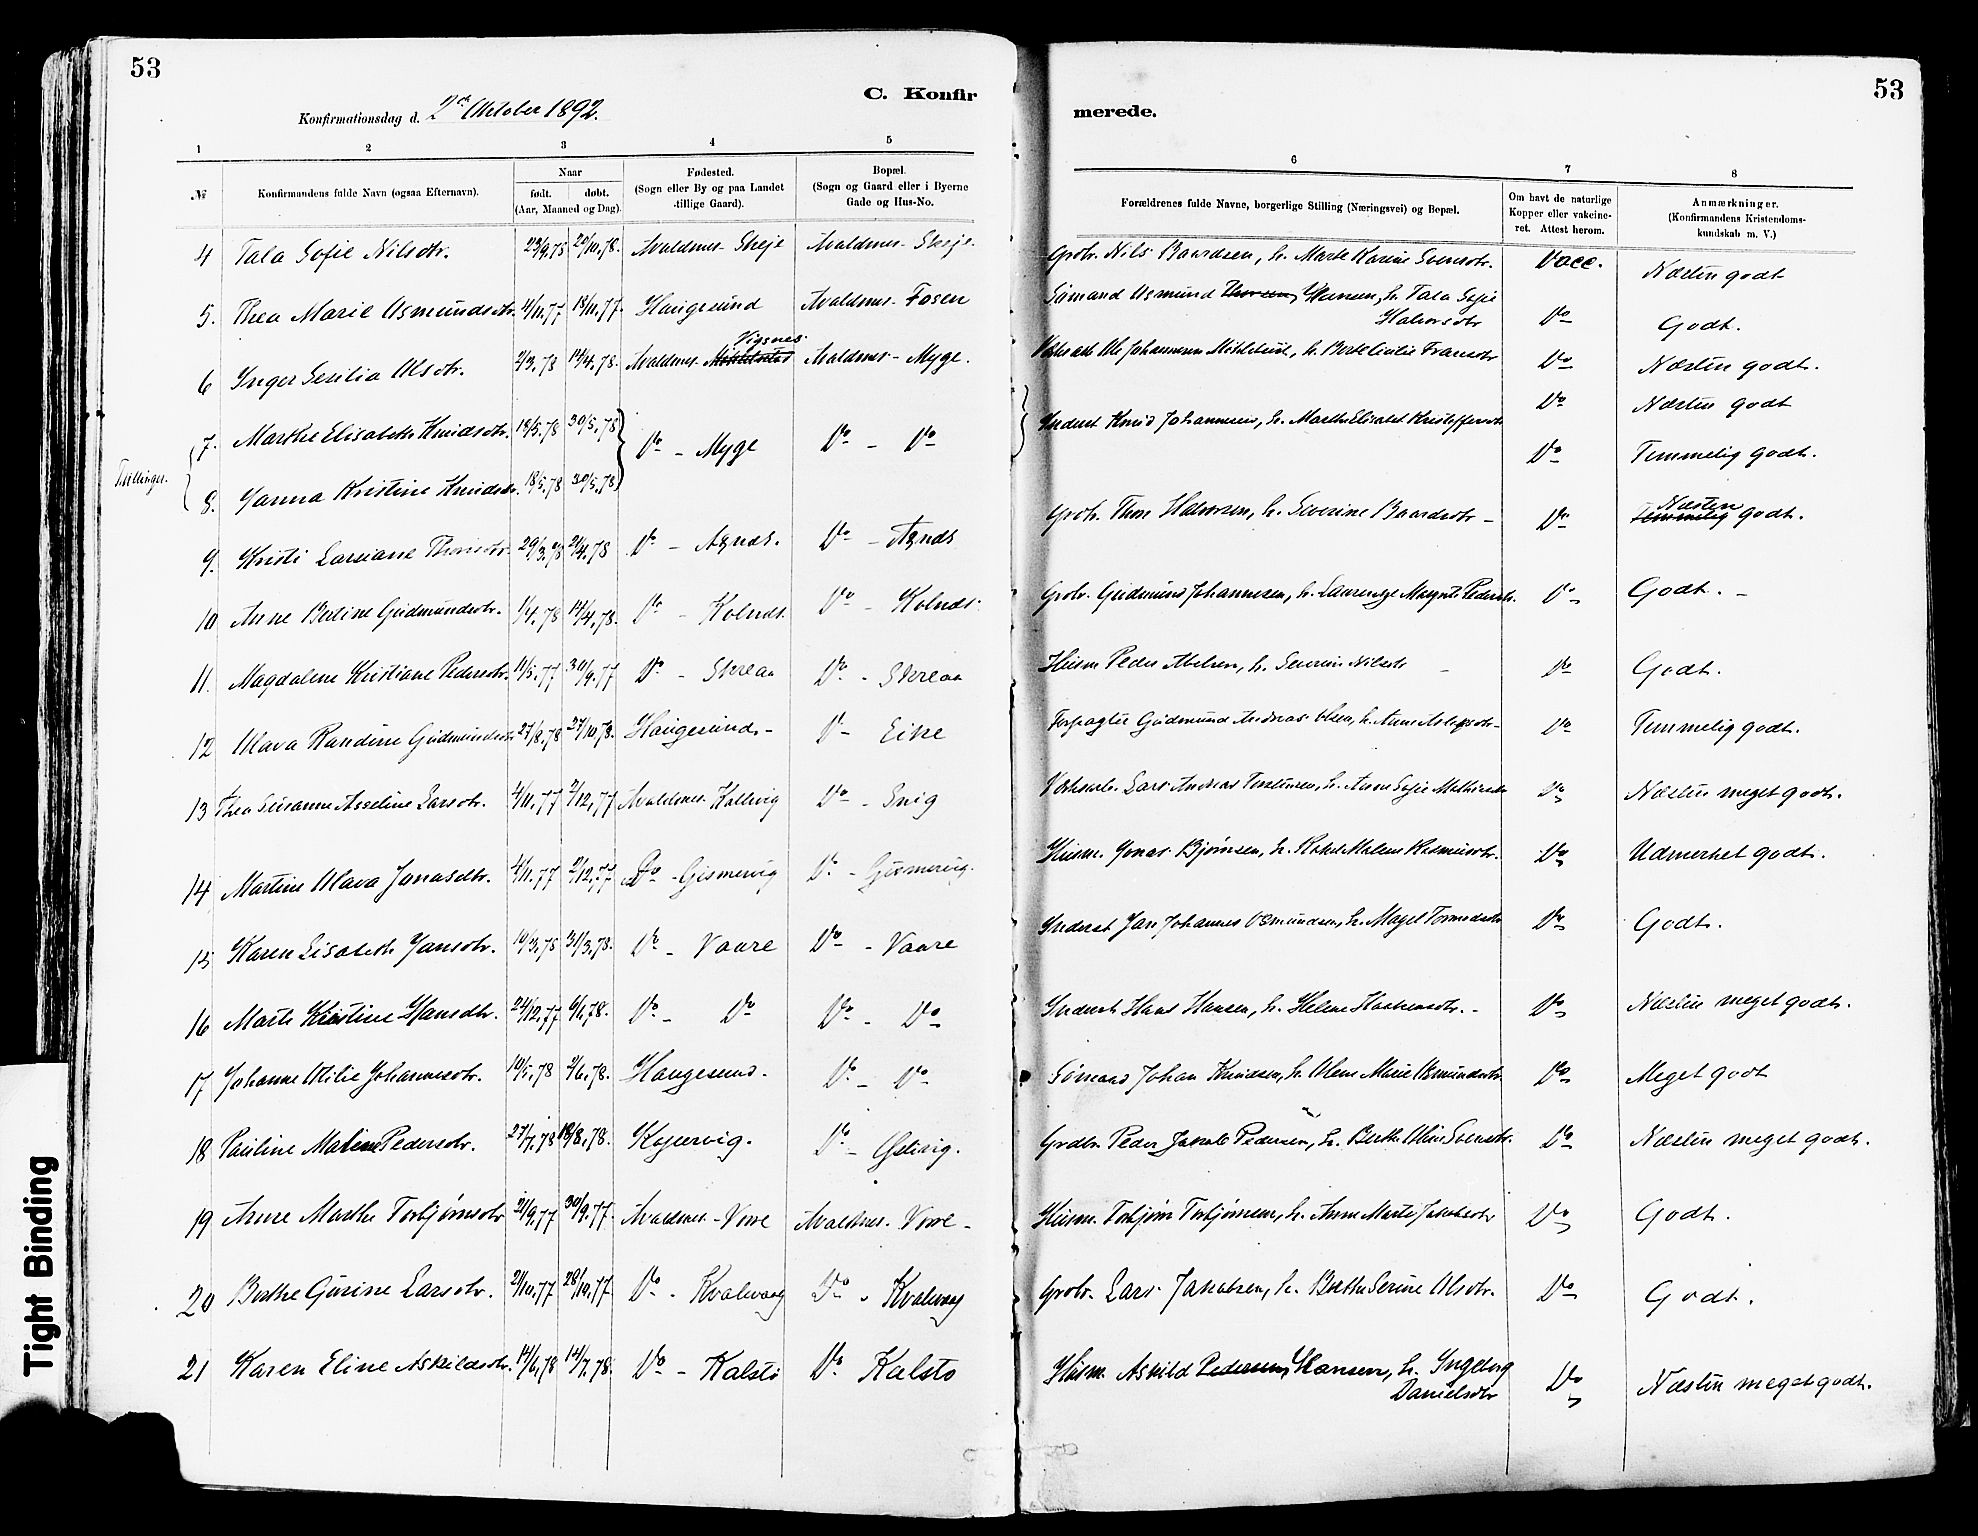 53
53
C. Konfir
merede.
Konfirmationsdag d. 2den Oktober 1892.
1 2 3 4 5 6 7 8
№
Konfirmandens fulde Navn (ogsaa Efternavn).
Naar
født. døbt.
(Aar, Maaned og Dag).
Fødested.
(Sogn eller By og paa Landet
tillige Gaard).
Bopæl.
(Sogn og Gaard eller i Byerne
Gade og Hus-No.
Forældrenes fulde Navne, borgerlige Stilling (Næringsvei) og Bopæl.
Om havt de naturlige
Kopper eller vakcine-
ret. Attest herom.
Anmærkninger.
(Konfirmandens Kristendoms-
kundskab m. V.)
4 Tala Sofie Nilsdtr. 23/9.78 20/10.78. Avaldsnes - Skeje Avaldsnes - Skeje. Grdbr. Nils Baardsen, h. Marte Karine Svensdtr. Vacc. Næsten godt
5. Thea Marie Asmundsdtr. 4/11.77 18/11.77. Haugesund Avaldsnes - Fosen Sømand Asmund Thorsen, Hansen, h. Tala Sofie
Halvorsdtr Do Godt.
Vigsnes
6 Inger Sesilia Olsdtr. 2/3.78 14/4.78. Avaldsnes - Avaldsnes - Myge. Ole Johannessen h. Do Næsten godt.
Tvillinger.
7. Marthe Elisabeth Knudsdtr. 18/5.78 30/5.78 Do - Myge Do - Do Inderst Knud Johannesen, h. Marthe Elisabet Kristoffersdtr Do Næsten godt
8. Janna Kristine Knudsdtr. 18/5.78 30/5.78 Do Temmelig godt.
9. Kristi Larsiane Thorsdtr. 29/3.78 21/4.78 Do - Agnds. Do - Agnds Grdbr. Thore Halvorsen, h. Severine Baardsdtr - Do Næsten
Temmelig godt.
10 Anne Bertine Gudmundsdtr. 1/4.78 14/4.78. Do - Kolnds. Do - Kolnds. Grdbr. Gudmund Johannesen, h. Laurentze Pedersdtr. Do Godt. -
11. Magdalene Kristiane Pedersdtr. 11/5.77 30/9.77 Do - Skreaa Do - Skreaa Husm Peder Abelsen, h. Severine Nilsdtr - Do Godt.
12 Olava Randine Gudmundsdtr 27/8.78 27/10.78. Haugesund. - Do - Eike Forpagter Gudmund Andreas Olsen, h. Anne Aslagsdtr - Do Temmelig godt.
13 Thea Susanne Asseline Larsdtr. 4/11.77 2/12.77 Avaldsnes. Kallevig Do - Snig Lars Andreas Torstensen, h. Anne Sofie Mathiasdtr Do Næsten meget godt.
14 Martine Olava Jonasdtr. 4/11.77 2/12.77 Do - Gismervig Do - Gismervig. Husm. Jonas Bjørnsen, h. Malene Rasmusdtr. Do Udmerket godt.
15 Karen Lisabeth Jansdtr. 10/3.78 31/3.78. Do - Vaare Do - Vaare Inderst Jan Johannes Osmundsen, h. Magel Tormodsdtr Do Godt.
16 Marte Kristine Hansdtr. 24/12.77 6/1.78. Do - Do Do - Do Inderst Hans Hansen, h. Helene Haakensdtr. - Do Næsten meget godt.
17 Johanne Otilie Johannesdtr. 10/5.78 2/6.78. Haugesund. Do - Do Sømand Johan Knudsen, h. Olene Marie Osmundsdtr. Do Meget godt
18 Pauline Malene Pedersdtr. 27/7.78 18/8.78. Kopervig. Do - Østevig. Grdbr. Peder Jakob Pedersen, h. Berthe Oline Svensdtr. Do Næsten meget godt.
19 Anne Marthe Torbjørnsdtr 21/9.77 30/9.77. Avaldsnes - Vore Avaldsnes. Vore - Husm. Torbjørn Torbjørnsen, h. Anne Marte Jakobsdtr Do Godt.
20 Berthe Gurine Larsdtr. 21/10.77 28/10.77. Do - Kvalevaag Do - Kvalevaag Grdbr. Lars Jakobsen, h. Berthe Serine Olsdtr. Do Godt.
21 Karen Eline Askildsdtr. 14/6.78 14/7.78. Do - Kalstø Do Kalstø Husm. Askild Pedersen, Hansen, h. Ingeborg
Danielsdtr Do Næsten meget godt.
Tight Binding